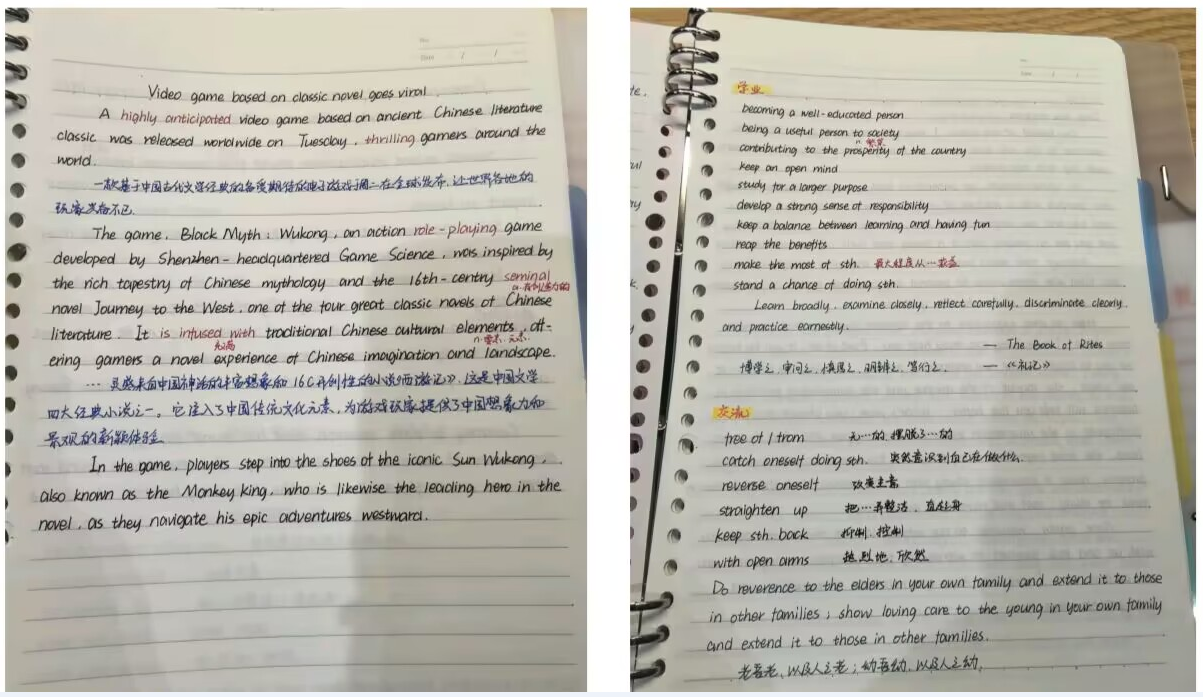 Video game based on classic novel goes viral.
A highly anticipated video game based on ancient Chinese literature
classic was released worldwide on Tuesday, thrilling gamers around the
world.
一款基于中国古代文学经典的备受期待的电子游戏于周二在全球发布,让世界各地的
玩家兴奋不已.
The game, Black Myth: Wukong, an action role-playing game
developed by Shenzhen-headquartered Game Science, was inspired by
the rich tapestry of Chinese mythology and the 16th-centry seminal
a.有创造力的
novel Journey to the West, one of the four great classic novels of Chinese
literature. It is infused with traditional Chinese cultural elements, off-
充满
n.要素.元素.
ering gamers a novel experience of Chinese imagination and landscape.
… 灵感来自中国神话的丰富想象和16C再创性的小说《西游记》,这是中国文学
四大经典小说之一。它注入了中国传统文化元素,为游戏玩家提供了中国想象力和
景观的新颖体验
In the game, players step into the shoes of the iconic Sun Wukong,
also known as the Monkey king, who is likewise the leading hero in the
novel, as they navigate his epic adventures westward.
学业
becoming a well-educated person
being a useful person to society
n.繁荣
contributing to the prosperity of the country
keep an open mind
study for a larger purpose
develop a strong sense of responsibility
keep a balance between learning and having fun
reap the benefits
make the most of sth. 最大程度从…获益
stand a chance of doing sth.
Learn broadly, examine closely, reflect carefully, discriminate clearly,
and practice earnestly.
— The Book of Rites
博学之,审问之,慎思之,明辨之,笃行之. —《礼记》
交流
free of / from 无…的 摆脱了…的
catch oneself doing sth. 突然意识到自己在做什么.
reverse oneself 改变主意
straighten up 把…弄整洁,直起身
keep sth. back 抑制,控制
with open arms 热烈地,欣然
Do reverence to the elders in your own family and extend it to those
in other families; show loving care to the young in your own family
and extend it to those in other families.
老吾老,以及人之老;幼吾幼,以及人之幼.